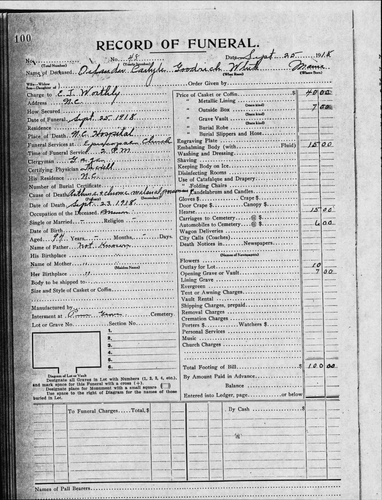 100
RECORD OF FUNERAL.
No. 45 Date Sept 25 1918
(Total Number) (Yearly Number)
Name of Deceased Goodrich White Maine
(What Race) (Where Born)
Charge to E. J. Worthly
Address N.C.
Order Given by
How Secured
Date of Funeral Sept. 25 1918
Residence
Place of Death N.C. Hospital
Funeral Services at Church
Time of Funeral Service 2 P.M
Clergyman
Certifying Physician
His Residence N.C.
Number of Burial Certificate
Cause of Death
Date of Death Sept 23 1918
Occupation of the Deceased
Single or Married Religion
Date of Birth
Aged Years, Months, Days
Name of Father Not Known
His Birthplace "
Name of Mother "
(Maiden Name)
Her Birthplace "
Body to be Shipped to
Size and Style of Casket or Coffin
Manufactured by
Interment at Pine Grove Cemetery
Lot or Grave No. Section No.
1.
2.
3.
4.
5.
6.
Diagram of Lot or Vault
Designate all Graves in Lot with Numbers (1, 2, 3, 4, etc.), and mark space for this Funeral with a cross (+).
Designate place for Monument with a small square
Use space to the right of Diagram for the names of those buried in Lot.
Price of Casket or Coffin $ 40 00
" Metallic Lining
" Outside Box 7 00
" Grave Vault
" Burial Robe
" Burial Slippers and Hose
Engraving Plate
Embalming Body (with Fluid) 15 00
Washing and Dressing
Shaving
Keeping Body on Ice
Disinfecting Rooms
Use of Catafalque and Drapery
" Folding Chairs
" Candelabrum and Candles
Gloves $ Crape $
Door Crape $ Canopy $
Hearse 15 00
Carriages to Cemetery @ $
Automobiles to Cemetery @ $ 6 00
Wagon Deliveries
City Calls (Coaches)
Death Notices in Newspapers
Flowers
Outlay for Lot 10
Opening Grave or Vault 7 00
Lining Grave
Evergreen
Tent or Awning Charges
Vault Rental
Shipping Charges, prepaid
Removal Charges
Cremation Charges
Porters $ Watchers $
Personal Services
Music
Church Charges
Total Footing of Bill $ 100 00
By Amount Paid in Advance
Balance
Entered into Ledger, page or below
To Funeral Charges Total, $ By Cash
Names of Pall Bearers